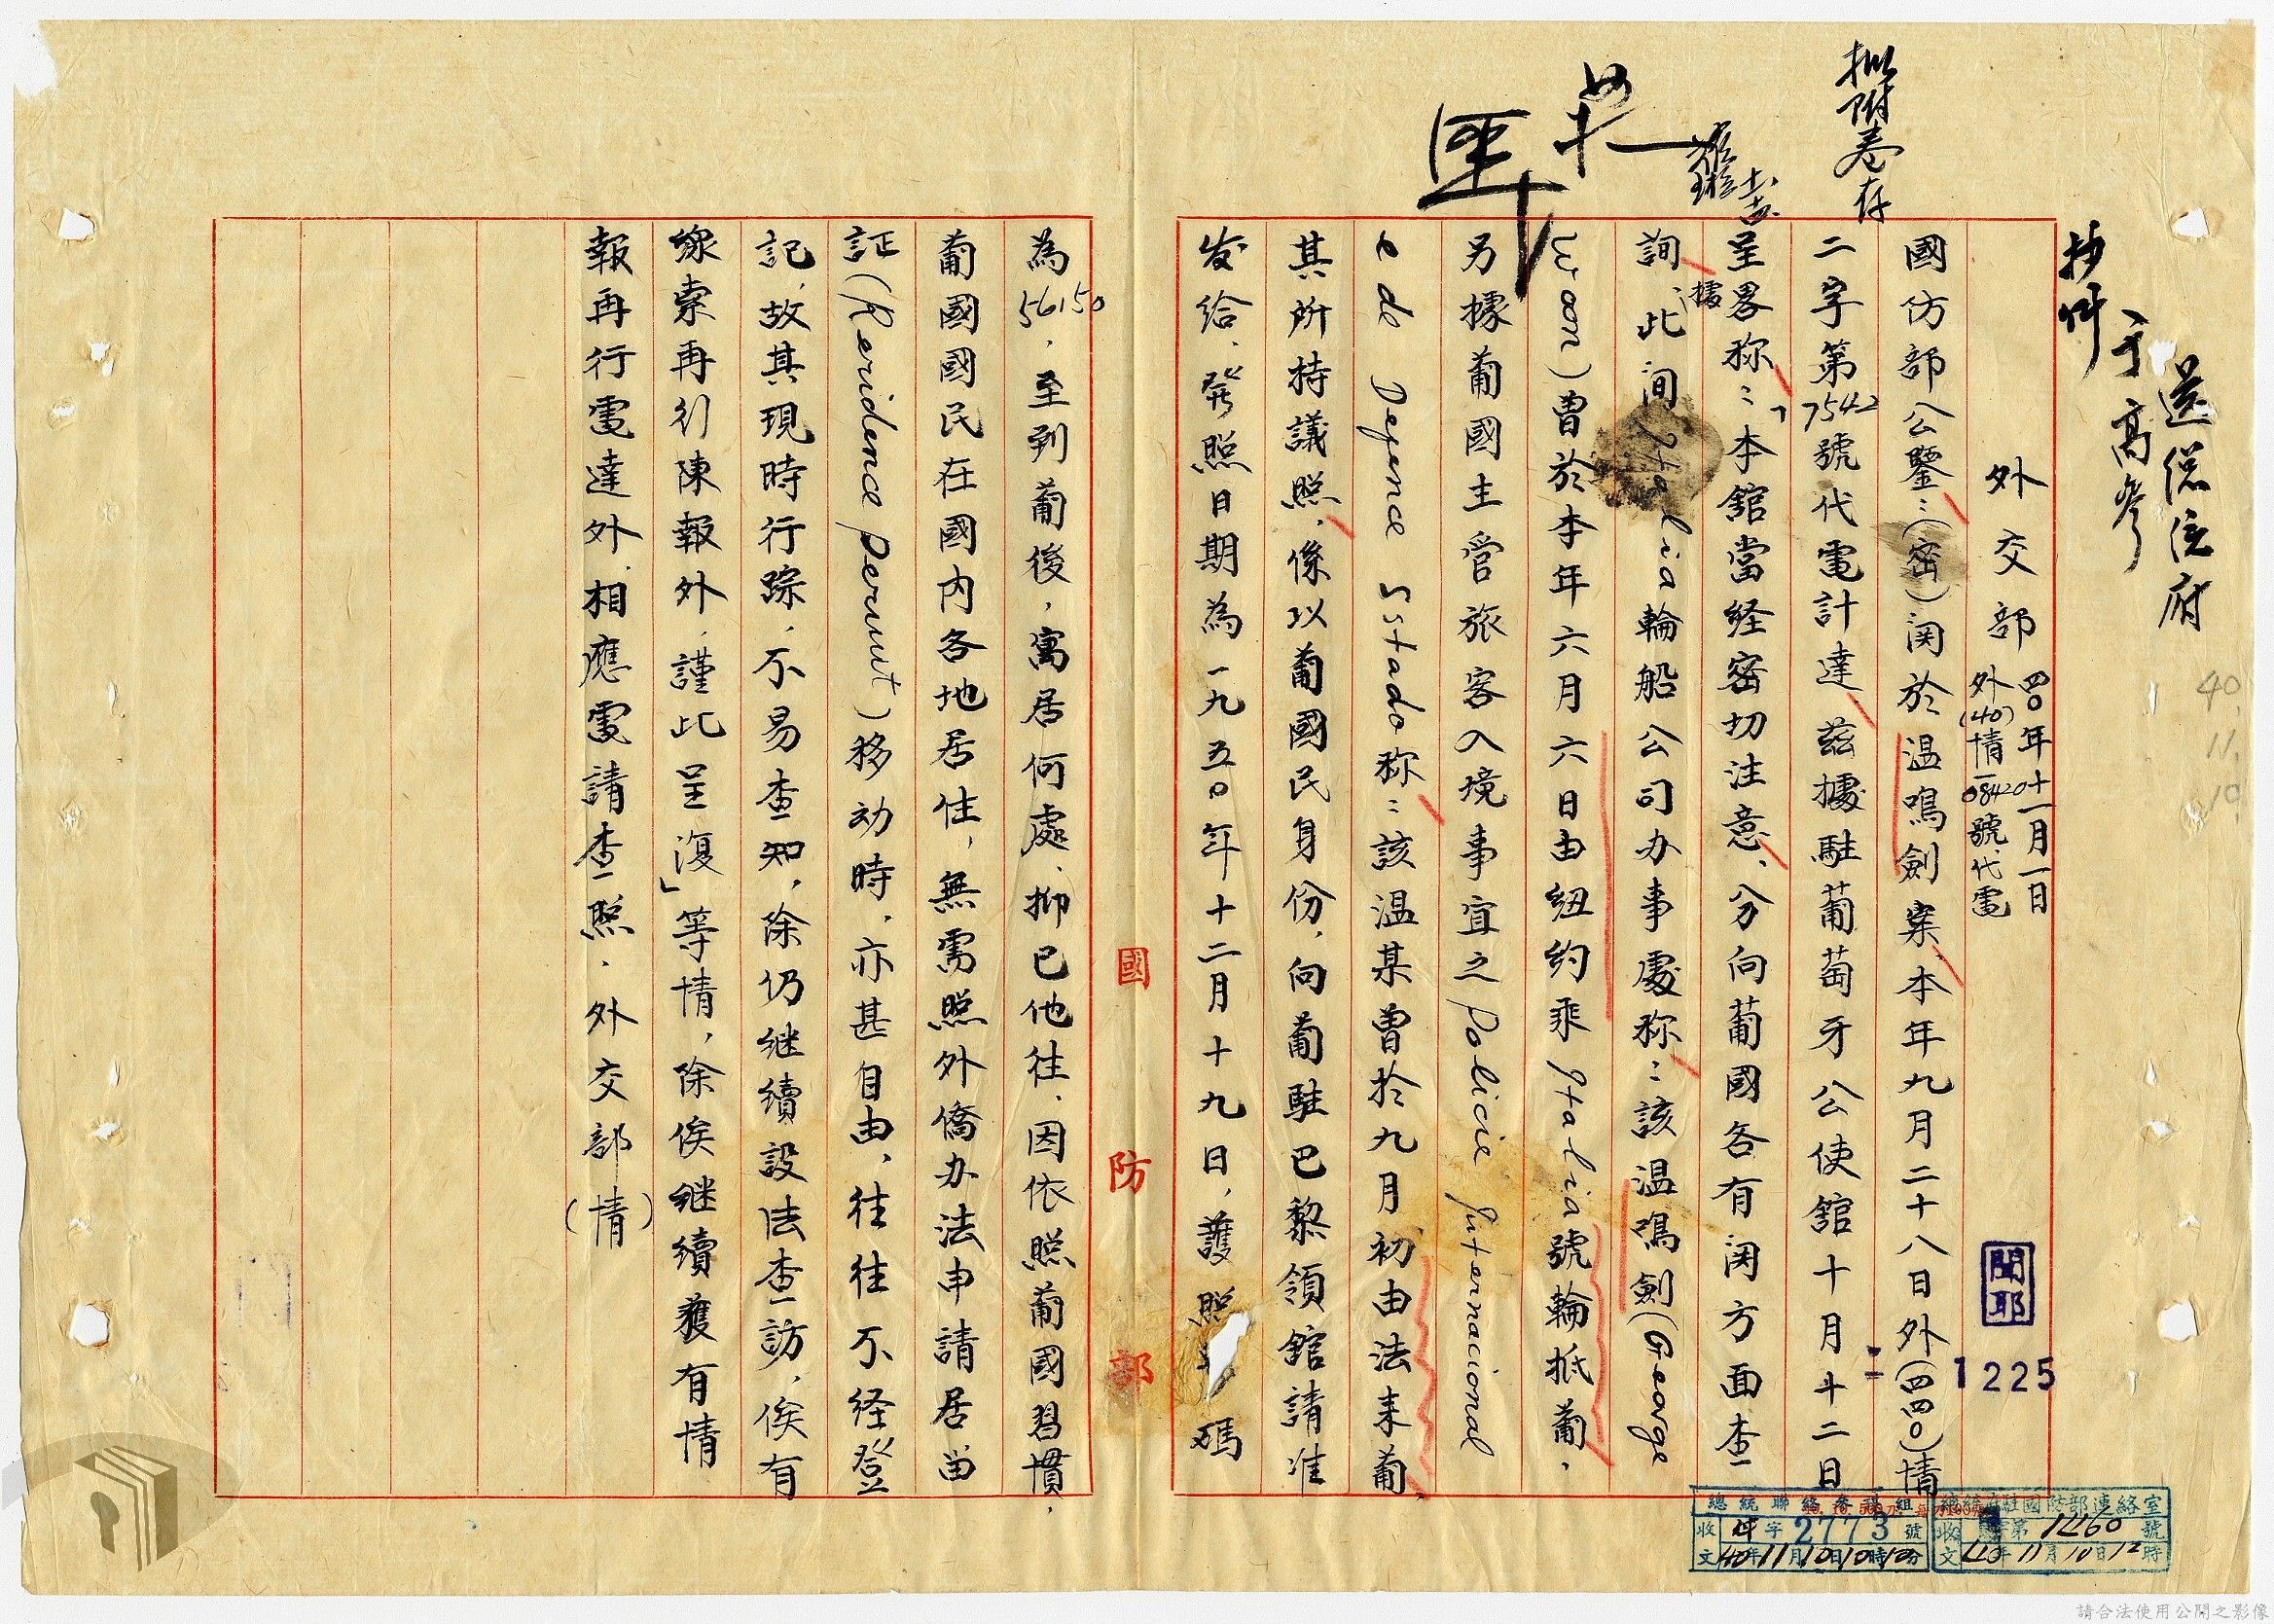 批附卷存
抄件
于高參
送總統府
40.11.10.
外交部
四〇年十一月一日
外(40)情一08420號代電
國防部公鑒：(密)関於温鳴劍案、本年九月二十八日外(四四〇)情
二字第77542號代電計達、茲據駐葡萄牙公使舘十月十二日
呈畧称：「本舘當経密切注意、分向葡國各有関方面查
詢、據此间Italia輪船公司办事處称：該温鳴劍(George
Won)曾於本年六月六日由紐約乘Italia號輪抵葡、
另據葡國主管旅客入境事宜之Policie Internacional
e de Defence Sstado称：該温某曾於九月初由法来葡、
其所持護照、係以葡國民身份、向葡駐巴黎領舘請准
发给、發照日期為一九五〇年十二月十九日、護照號碼
為56150、至到葡後、寓居何處、抑已他往、因依照葡國習慣、
葡國國民在國内各地居住、無需照外僑办法申請居留
証(Residence permit)移动時、亦甚自由、往往不経登
記、故其現時行踪、不易查知、除仍继續設法查訪、俟有
線索再行陳報外、謹此呈復」等情、除俟继續獲有情
報再行電達外、相應電請查照、外交部(情)
國防部
閱耶
1225
總統聯絡參謀組
收文 字2773號
40年11月10日10時10分
總統府駐國防部連絡室
收文 字第1260號
40年11月10日12時
請合法使用公開之影像